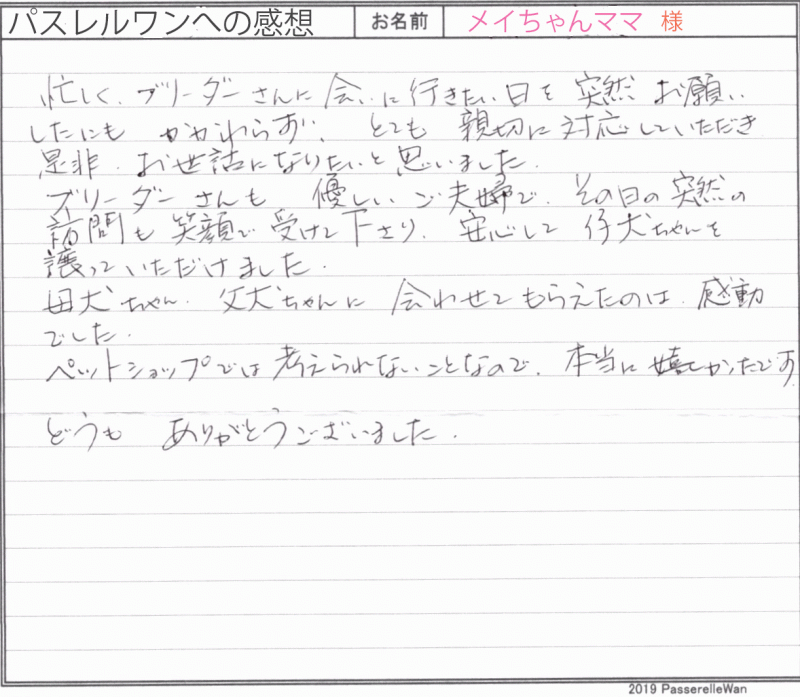 パスレルワンへの感想 お名前 メイちゃんママ 様
忙しく、ブリーダーさんに会いに行きたい日を突然お願い
したにもかかわらず、とても親切に対応していただき
是非、お世話になりたいと思いました。
ブリーダーさんも優しいご夫婦で、その日の突然の
訪問も笑顔で受けて下さり、安心して仔犬ちゃんを
譲っていただけました。
母犬ちゃん、父犬ちゃんに会わせてもらえたのは、感動
でした。
ペットショップでは考えられないことなので、本当に嬉しかったです。
どうもありがとうございました。
2019 PasserelleWan